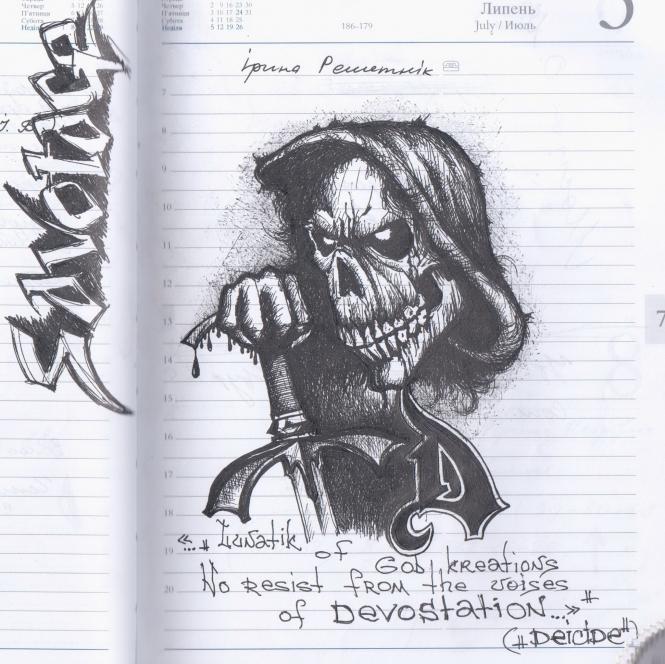 Четвер
П'ятниця
Субота
Неділя 5 12 19 26
2 9 16 23 30
3 10 17 24 31
4 11 18 25
5 12 19 26
186-179
Липень
July / Июль
5
Ірина Решетнік
7
8
9
10
11
12
13
14
15
16
17
18
19
20
7
D
"...Lunatik
of God kreations
No resist from the voises
of Devostation..."
("Deicide")